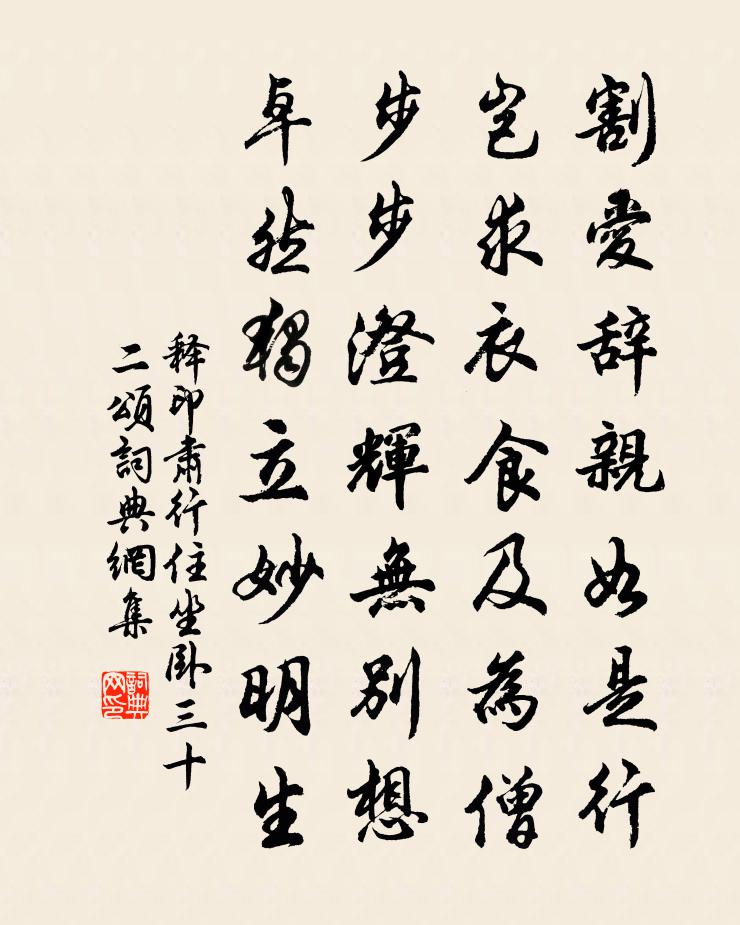 割愛辞親如是行
豈求衣食及為僧
步步澄輝無別想
卓然獨立妙明生
释印肅行住坐臥三十
二頌詞典網集
詞典
网印